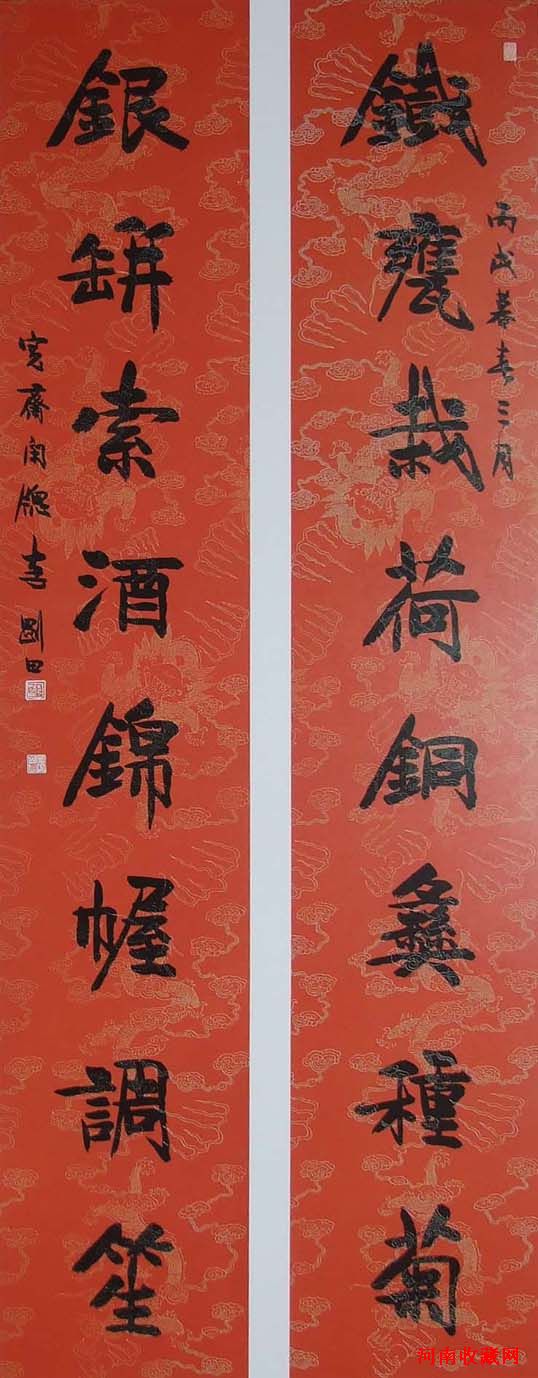 鐵甕栽荷銅彝種菊
丙戌暮春三月
銀缾索酒錦幄調笙
寬齋 李剛田
河南收藏网